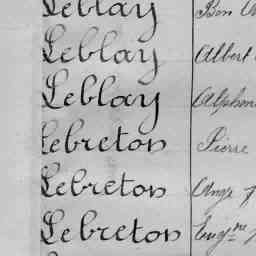 Leblay Ben
Leblay Albert
Leblay Alphon
Lebreton Pierre
Lebreton Ange
Lebreton Eugne